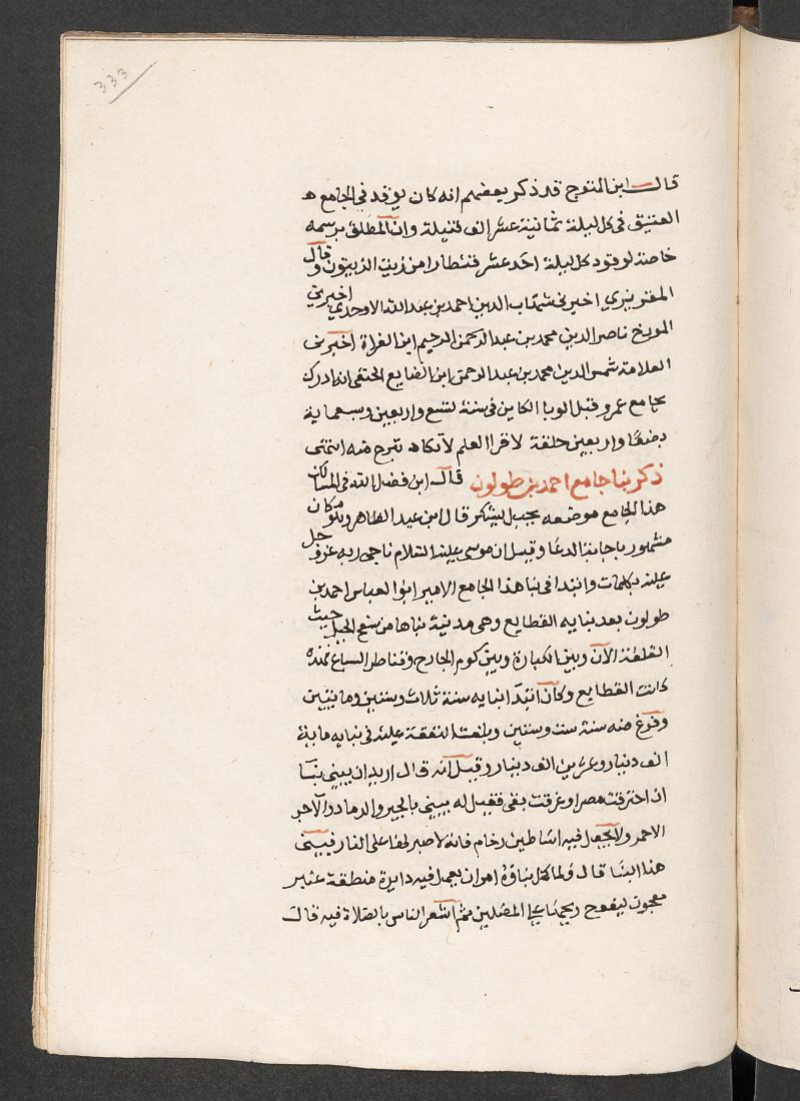 333
قال ابن المتوج قد ذكر بعضهم انه كان يوقد فى الجامع
العتيق فى كل ليلة ثمانية عشر الف فتيلة وان المطلق برسمه
خاصة لوقود كل ليلة احد عشر قنطارا من زيت الزيتون وقال
المقريزي اخبرنى شهاب الدين احمد بن عبد الله الاوحدي اخبرني
المورخ ناصر الدين محمد بن عبد الرحمن الرحيم ابن الفراة اخبرنى
العلامة شمس الدين محمد بن عبد الرحمن ابن الضايع الحنفى انه ادرك
بجامع عمرو قبل الوبا الكاين فى سنة تسع واربعين وسبعماية
بضعًا واربعين حلقة لاقرا العلم لا تكاد تبرح منه انتهى
ذكر بنا جامع احمد بن طولون قال ابن فضل الله فى المسالك
هذا الجامع موضعه بجبل يشكر قال ابن عبد الظاهر وهو مكان
مشهور باجابة الدعا وقيل ان موسى عليه السلام ناجى ربه عز وجل
عليه بكلمات وابتدا فى بنا هذا الجامع الامير ابو العباس احمد بن
طولون بعد بنايه القطايع وهى مدينة بناها من سفح الجبل حيث
القلعة الآن وبين الكبارة وبين كوم الجارح وقناطر السباع فهذه
كانت القطايع وكان ابتدا بنايه سنة ثلاث وستين ومايتين
وفرغ منه سنة ست وستين وبلغت النفقة عليه فى بنايه ماية
الف دينار وعشرين الف دينار وقيل انه قال اريد ان يبنى بنا
ان احترقت مصر او غرقت بقى فقيل له يبنى بالجير والرماد والآجر
الاحمر ولا يجعل فيه اساطين رخام فانه لا صبر لها على النار فبنى
هذا البنا قال ولما كمل بناؤه امر ان يعمل فيه دايرة منطقة عنبر
معجون ليفوح ريحها على المصلين ثم اشعر الناس بالصلاة فيه قال